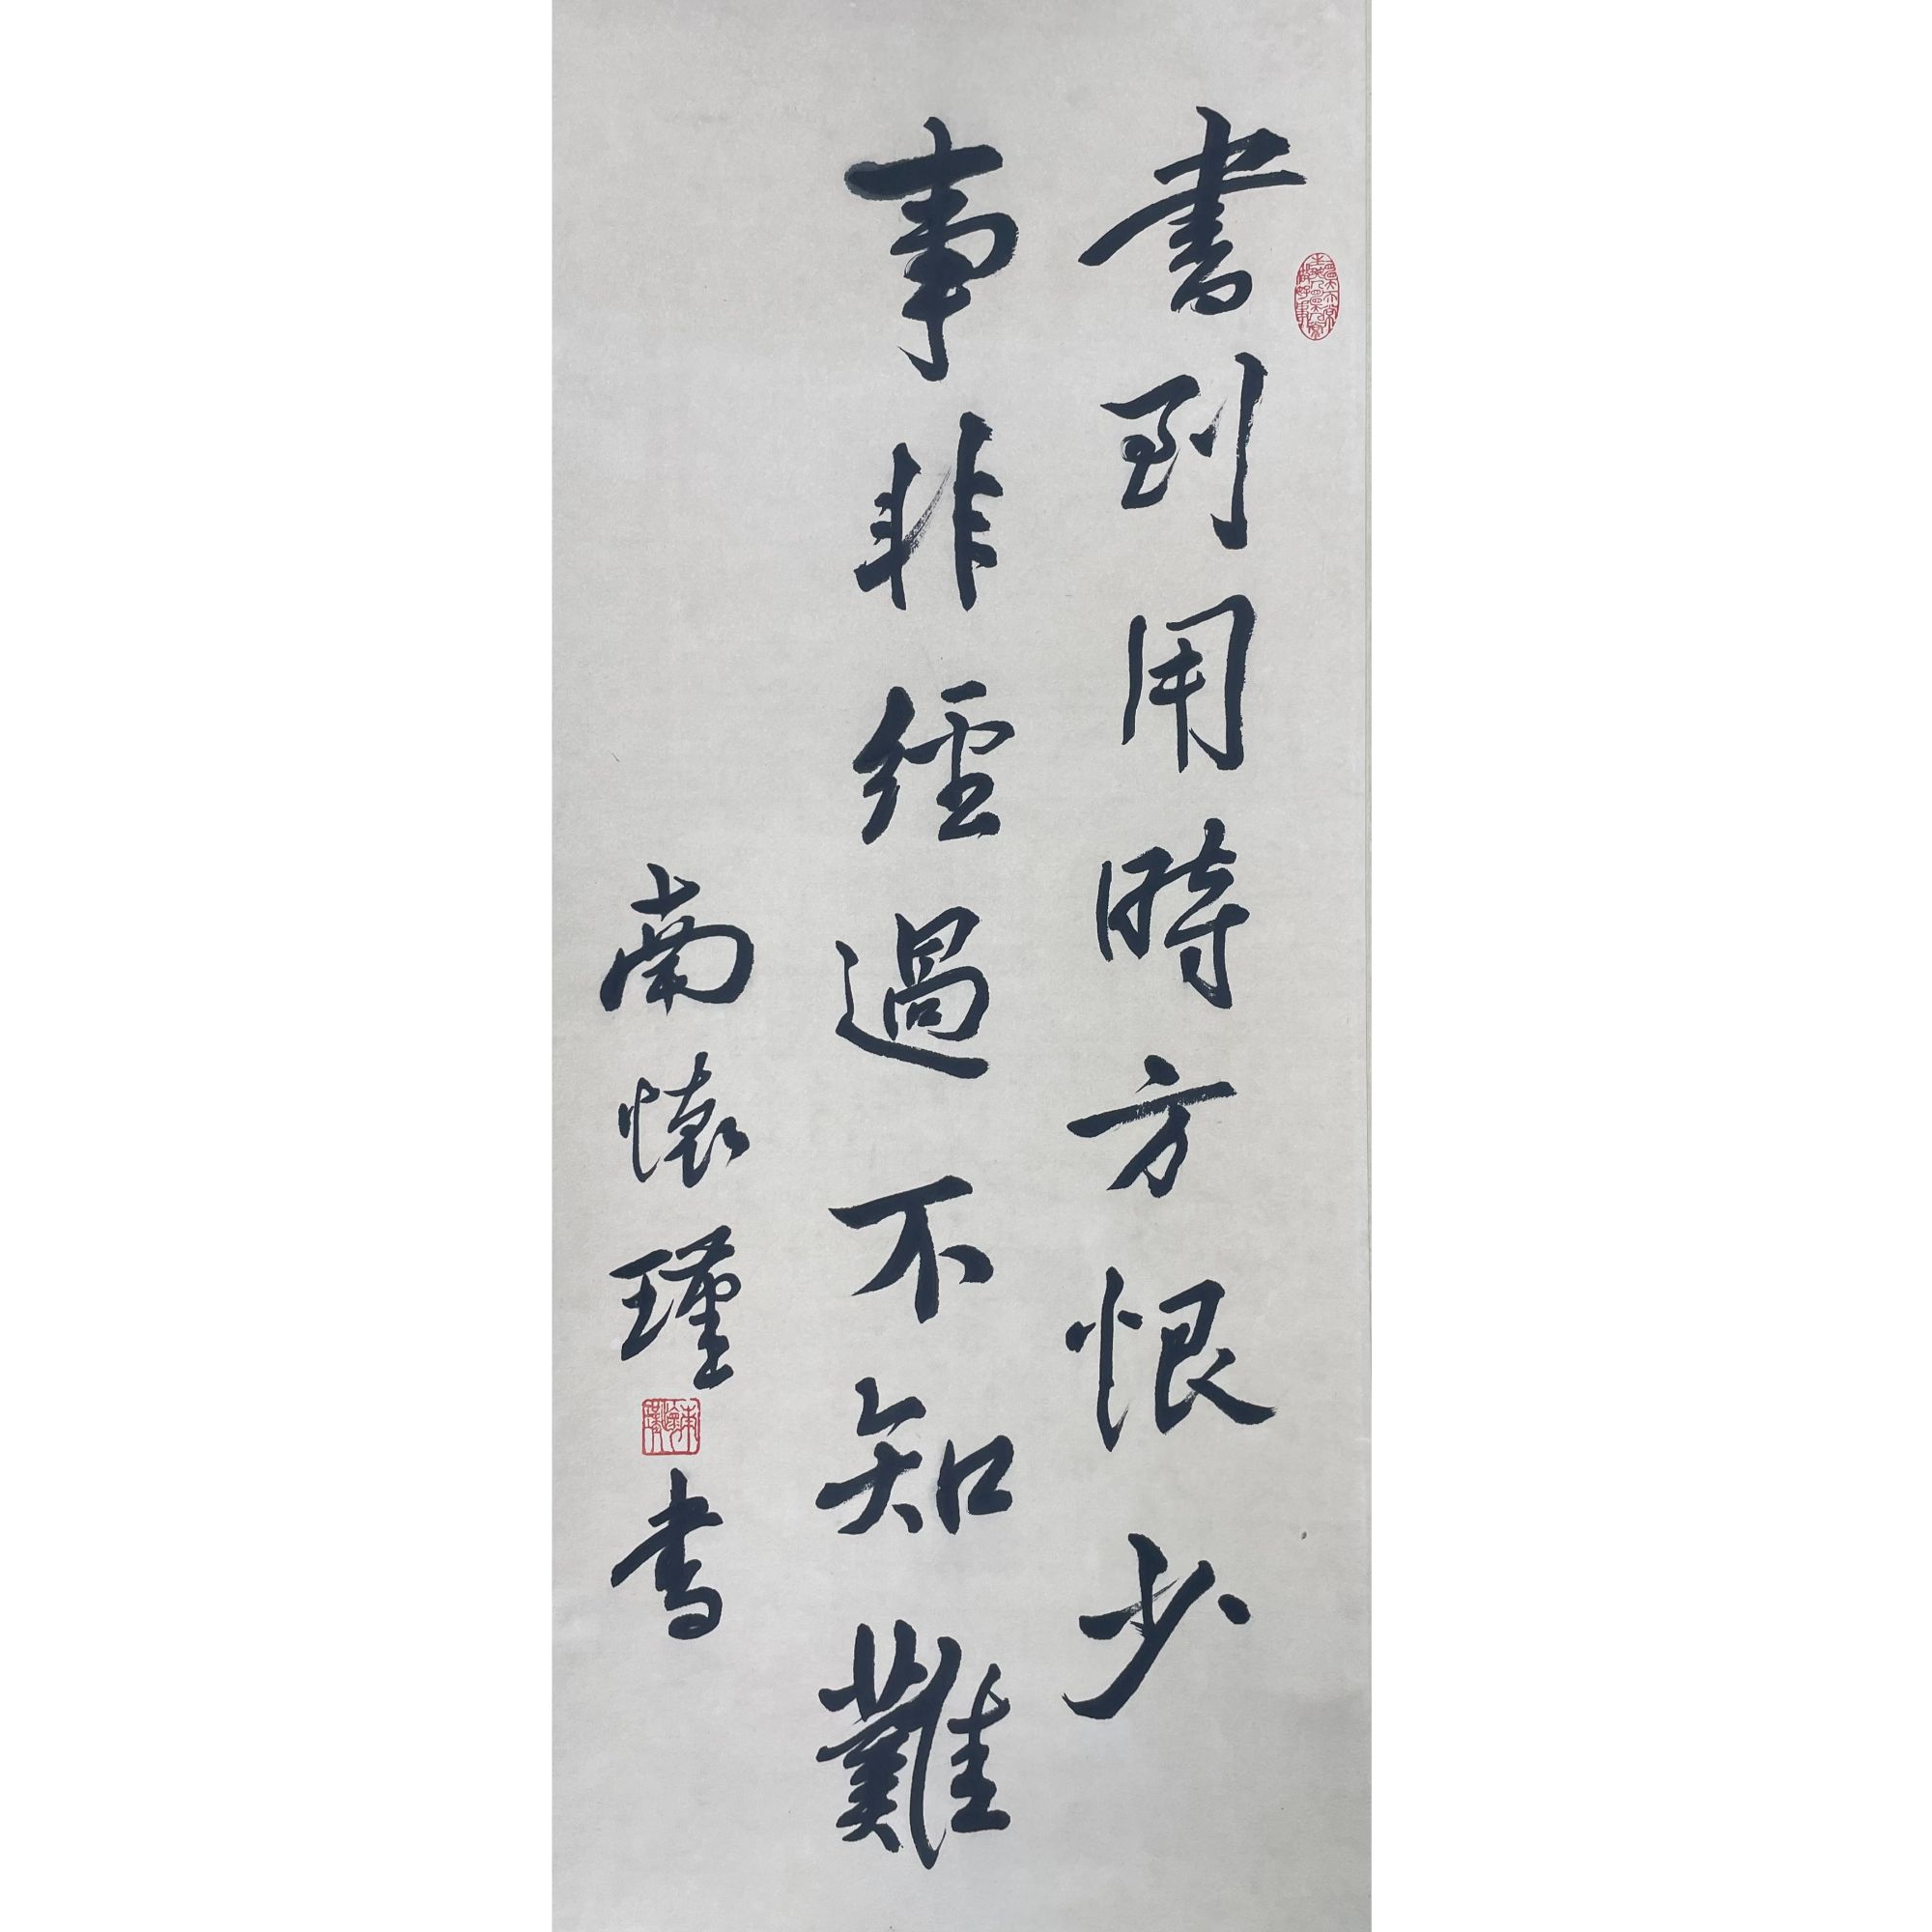 書到用時方恨少
事非經過不知難
南懷瑾書
南懷瑾